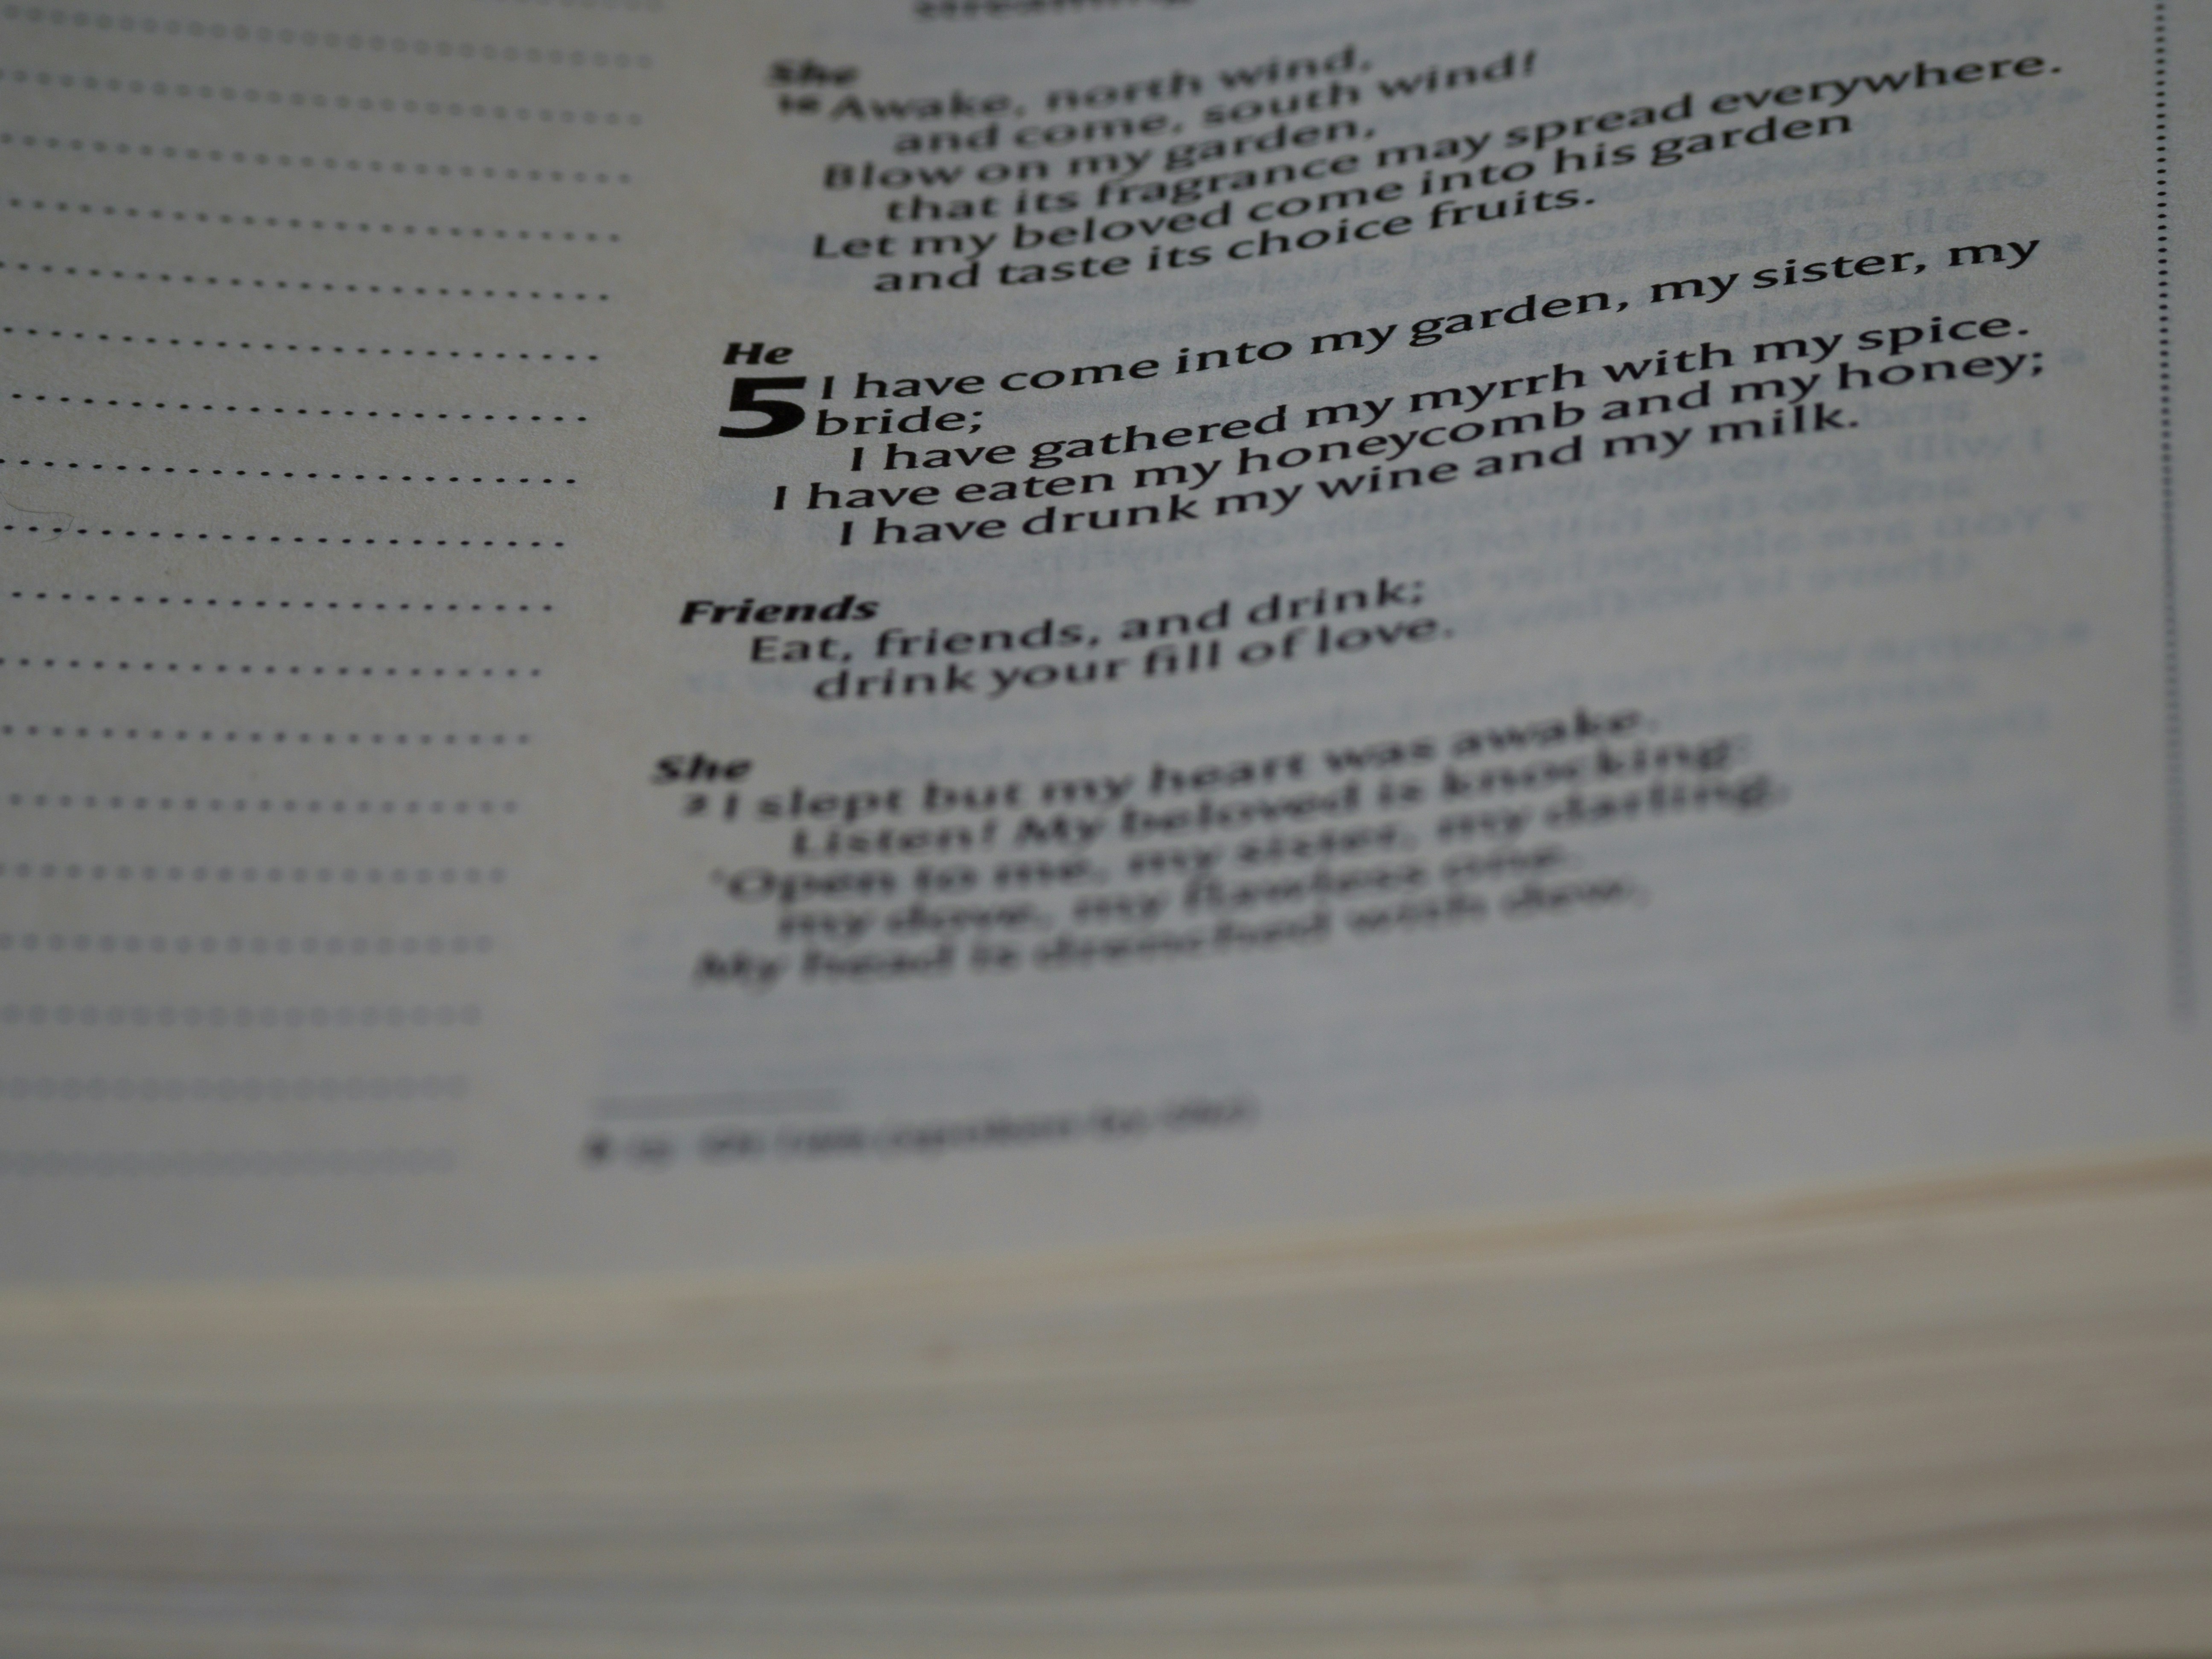 streaming
She
16 Awake, north wind,
and come, south wind!
Blow on my garden,
that its fragrance may spread everywhere.
Let my beloved come into his garden
and taste its choice fruits.
He
5 I have come into my garden, my sister, my
bride;
I have gathered my myrrh with my spice.
I have eaten my honeycomb and my honey;
I have drunk my wine and my milk.
Friends
Eat, friends, and drink;
drink your fill of love.
She
2 I slept but my heart was awake.
Listen! My beloved is knocking:
‘Open to me, my sister, my darling,
my dove, my flawless one.
My head is drenched with dew,